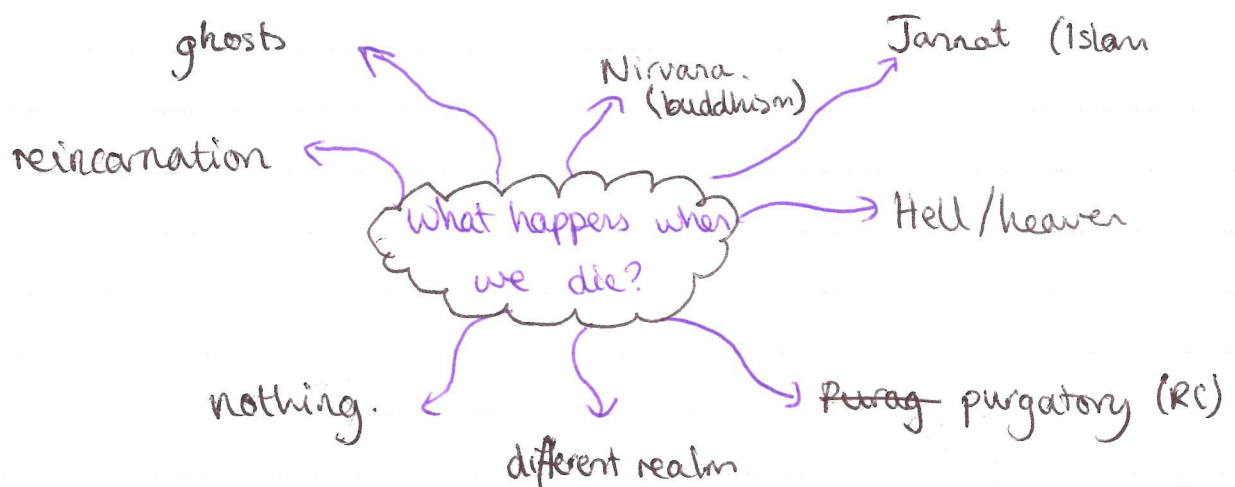 ghosts
Nirvana.
(buddhism)
Jannat (Islam
reincarnation
What happens when
we die?
Hell/heaven
nothing.
different realm
Purag purgatory (RC)